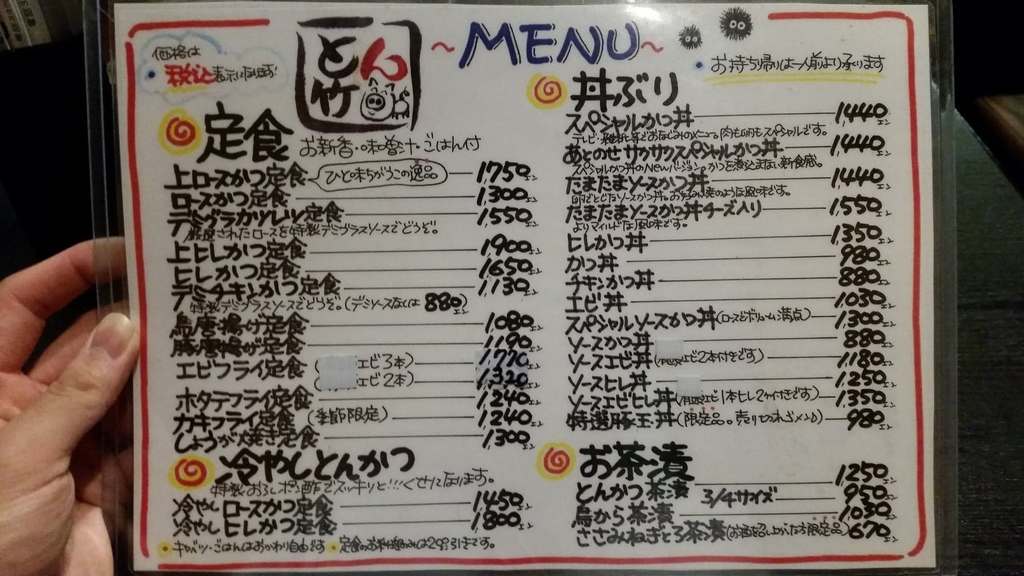 価格は
税込と表示になります!
とん竹
~MENU~
お持ち帰りは一人前より承ります
定食 お新香・味噌汁・ごはん付
上ロースかつ定食 ひと味ちがうこの逸品 1750エン
ロースかつ定食 1,300エン
デミグラカツレツ定食 1,550エン
厳選されたロースを特製デミグラスソースでどうぞ。
上ヒレかつ定食 1900エン
ヒレかつ定食 1650エン
デミチキンかつ定食 1,130エン
特製デミグラスソースでどうぞ(デミソースなしは 880エン
鳥唐揚げ定食 1080エン
豚唐揚げ定食 1190エン
エビフライ定食 (エビ3本) 1770エン
(エビ2本) 1320エン
ホタテフライ定食 1240エン
カキフライ定食 (季節限定) 1240エン
しょうが焼き定食 1300エン
冷やしとんかつ
特製おろしポン酢でスッキリと!!くせになります。
冷やしロースかつ定食 1450エン
冷やしヒレかつ定食 1800エン
キャベツ・ごはんはおかわり自由です
丼ぶり
スペシャルかつ丼 1440エン
テレビ・雑誌等でおなじみのメニュー肉も卵もスペシャルです。
あとのせサクサクスペシャルかつ丼 1440エン
スペシャルかつ丼のNewバージョンかつを煮込まない新食感。
たまたまソースかつ丼 1440エン
たまたまソースかつ丼チーズ入り 1,550エン
よりマイルドな風味です。
ヒレかつ丼 1350エン
かつ丼 980エン
チキンかつ丼 880エン
エビ丼 1030エン
スペシャルソースかつ丼(ロースとボリューム満点) 1300エン
ソースかつ丼 880エン
ソースエビ丼 1180エン
ソースヒレ丼 1250エン
ソースエビヒレ丼 1350エン
特選豚玉丼 (限定品。売り切れゴメン) 980エン
お茶漬
とんかつ茶漬 1250エン
3/4サイズ 950エン
鳥から茶漬 1030エン
ささみねぎとろ茶漬 670エン